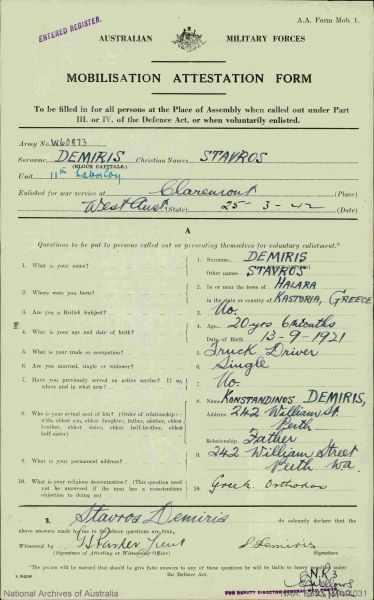 ENTERED REGISTER.
A.A. Form Mob. 1.
AUSTRALIAN MILITARY FORCES
MOBILISATION ATTESTATION FORM
To be filled in for all persons at the Place of Assembly when called out under Part
III. or IV. of the Defence Act, or when voluntarily enlisted.
Army No. W60873
Surname DEMIRIS Christian Names STAVROS
(BLOCK CAPITALS)
Unit 11th Labor Coy
Enlisted for war service at Claremont (Place)
West Aust (State) 25-3-42 (Date)
A
Questions to be put to persons called out or presenting themselves for voluntary enlistment.*
1. What is your name? 1. Surname DEMIRIS
Other names STAVROS
2. Where were you born? 2. In or near the town of HALARA
in the state or country of KASTORIA, GREECE
3. Are you a British Subject? 3. No.
4. What is your age and date of birth? 4. Age 20 yrs 6 Months
Date of Birth 13-9-1921
5. What is your trade or occupation? 5. Truck Driver
6. Are you married, single or widower? 6. Single
7. Have you previously served on active service? If so, where and in what arm? 7. No.
8. Who is your actual next of kin? (Order of relationship: wife, eldest son, eldest daughter, father, mother, eldest brother, eldest sister, eldest half-brother, eldest half-sister) 8. Name KONSTANDINOS DEMIRIS,
Address 242 William St.
Perth
Relationship Father
9. What is your permanent address? 9. 242 William Street
Perth Wa.
10. What is your religious denomination? (This question need not be answered if the man has a conscientious objection to doing so) 10. Greek Orthodox
I, Stavros Demiris do solemnly declare that the
above answers made by me to the above questions are true.
Witnessed by Parker Lieut S. Demiris
(Signature of Attesting or Witnessing Officer) Signature.
* The person will be warned that should he give false answers to any of these questions he will be liable to heavy penalties under
the Defence Act.
FOR DEPUTY DIRECTOR GENERAL
National Archives of Australia